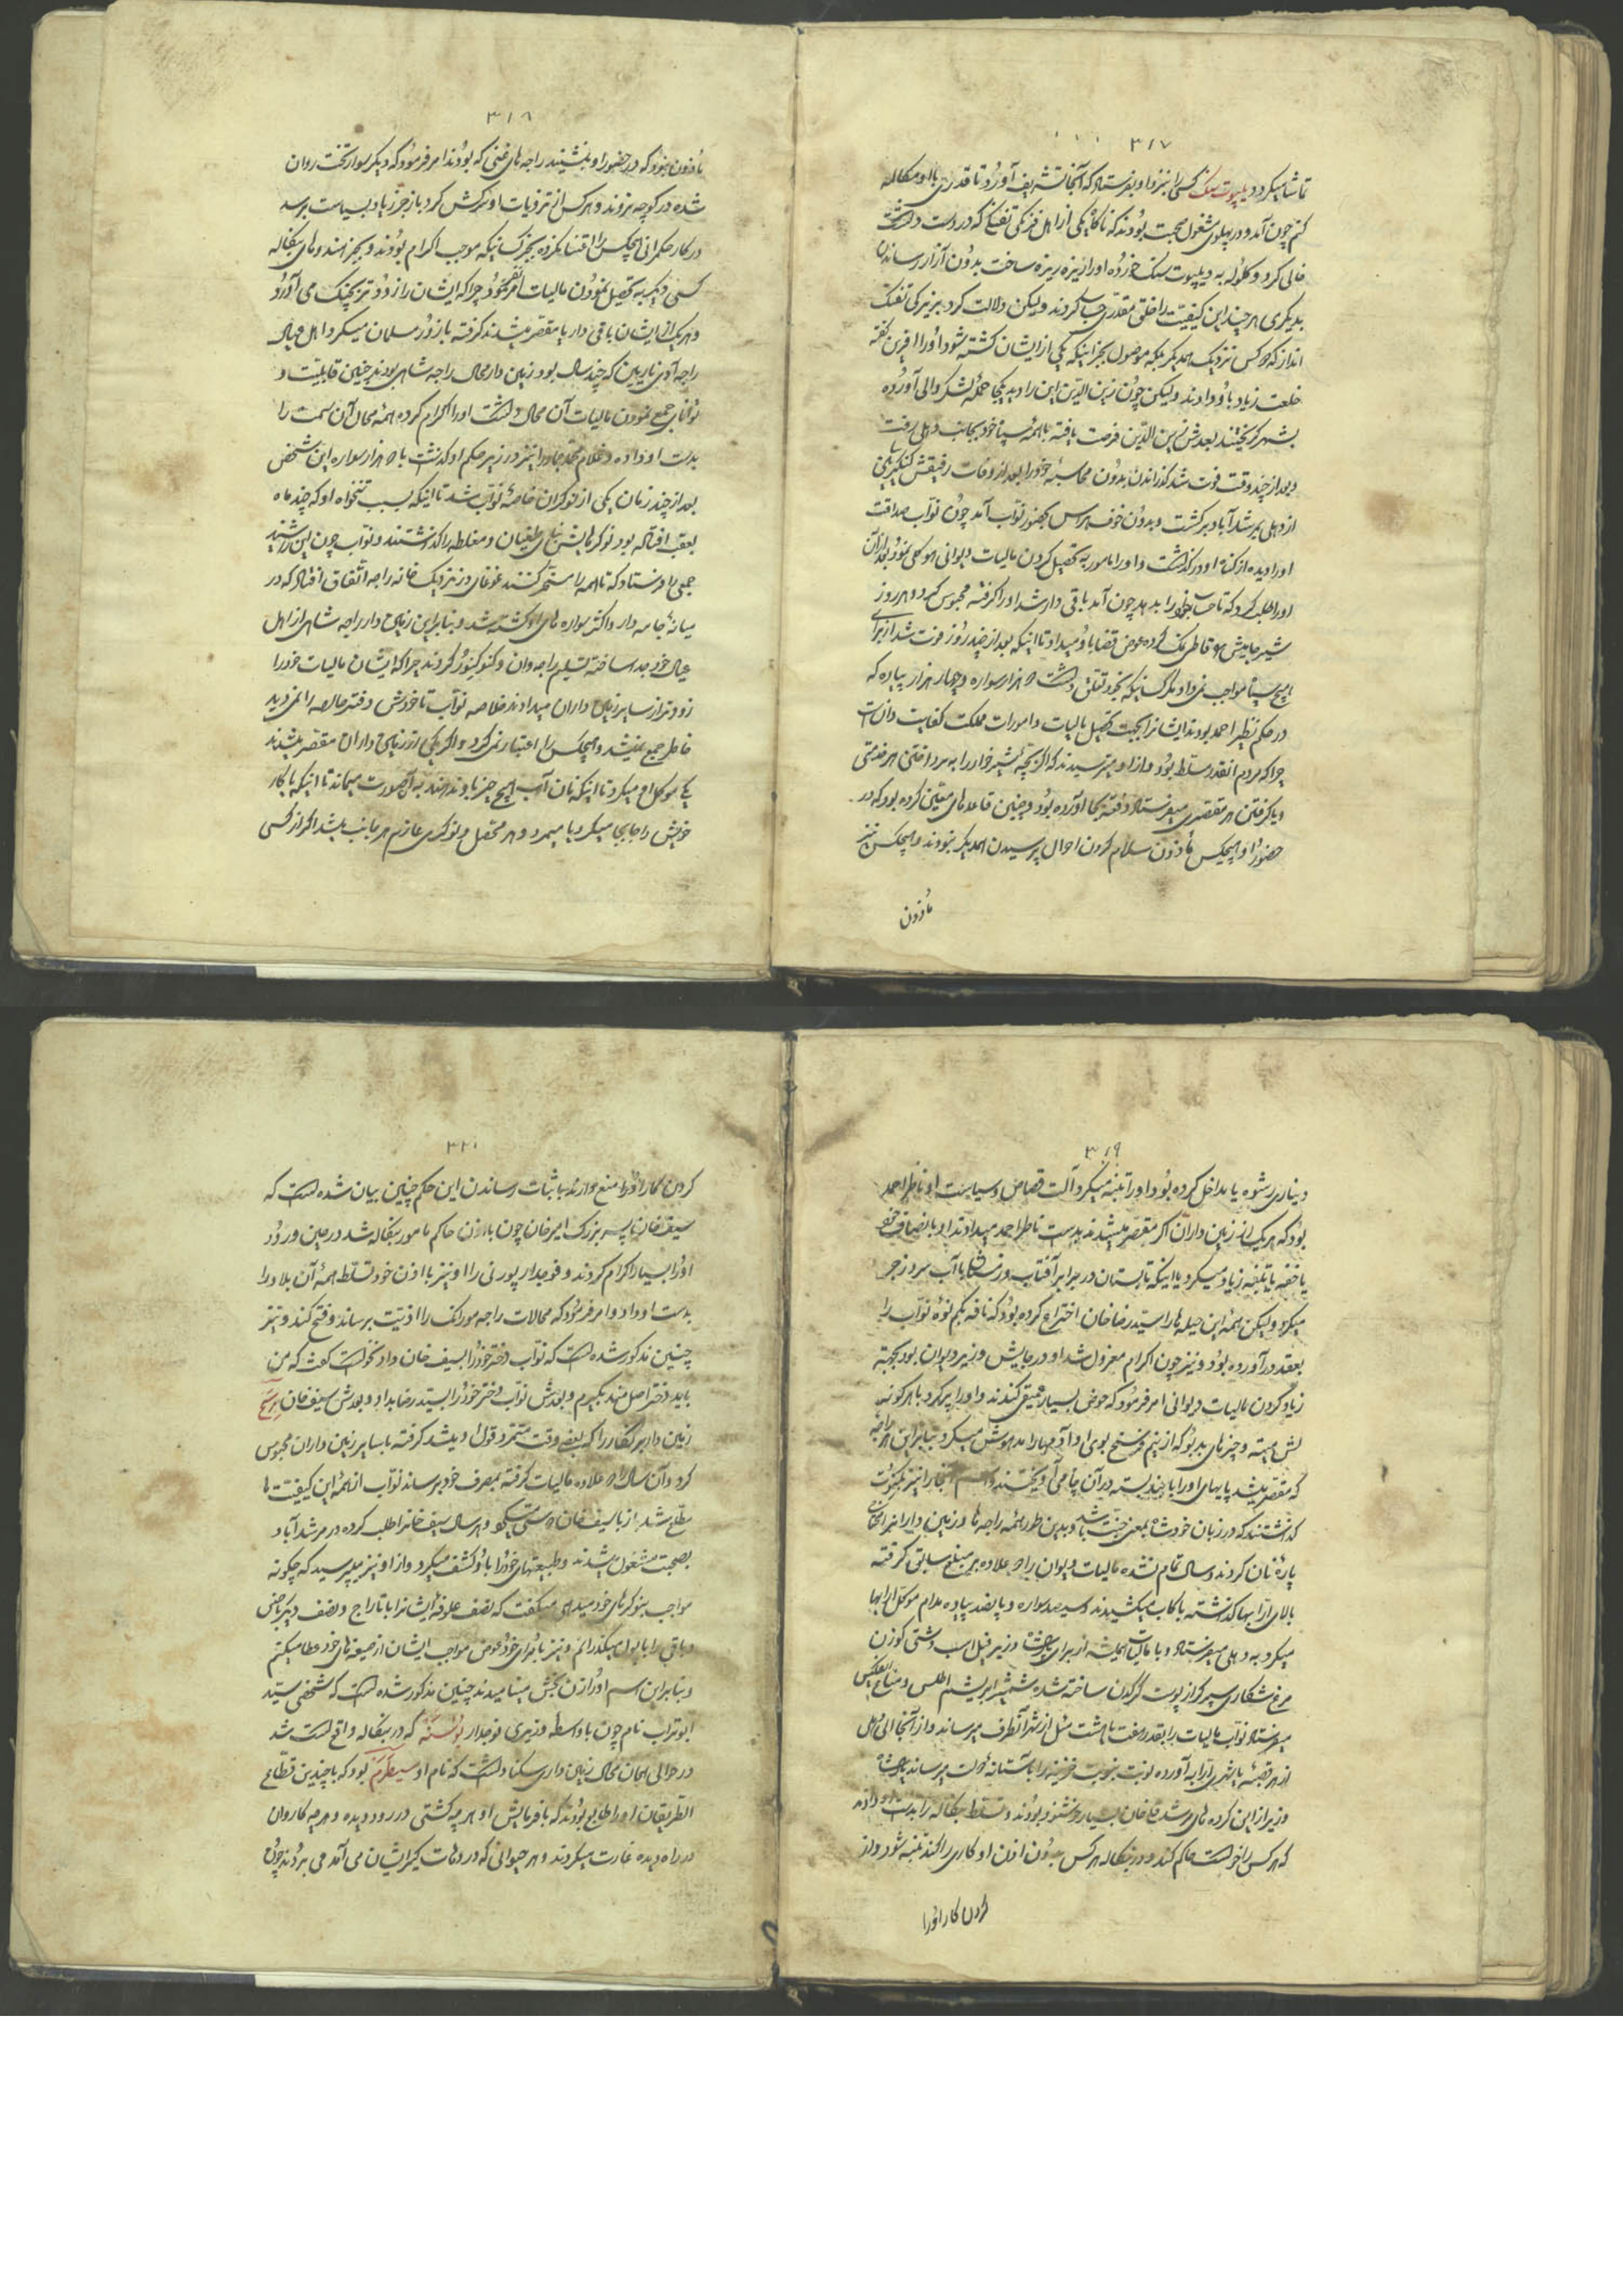 ۳۱۷
تماشا میکرد دیلپوت سنک کسی را نزد او بفرستاد که آنجا تشریف آورد تا قدری با او مکالمه
کنم چون آمد و در پهلوی مشغول صحبت بودند که ناکاه یکی از اهل فرنکی تفنکی که در دست داشت
خالی کرد و کلوله به دیلپوت سنک خورده او را ریزه ریزه ساخت بدون آزار رساندن
بدیکری هر چند این کیفیت را خلق مقدری حساب کردند ولیکن دلالت کرد بزیرکی تفنک
انداز که هر کس نزدیک همدیکر بلکه موصول بجز اینکه یکی از ایشان کشته شود او را افرین کفته
خلعت زیاد باو دادند ولیکن چون زین الدین این را دید یکجا حمله لشکر والی آورده
بشهر کریختند بعدش زین الدین فرصت یافته با همه سپاه خود بجانب دهلی رفت
و بعد از چند وقت فوت شد کذراندن بدون محاسبه خود را بعد از وفات رفیقش
از دهلی بمرشد آباد برکشت و بدون خوف هراس بحضور نواب آمد چون نواب صداقت
او را دیده از کناه او در کذشت و او را مامور به تحصیل کردن مالیات دیوانی هوکلی نمود بعد از آن
او را طلب کرد که تا حساب خود را بدهد چون آمد باقی دار شد او را کرفته محبوس کرد و هر روز
شیر جامیش با قاطی نمک کرده عوض قضا باو میداد تا اینکه بعد از چند روز فوت شد از برای
هیچ سپاه مواجب نمی داد مکر کسانیکه بخود تعلق داشت دو هزار سواره و چهار هزار پیاده که
در حکم نظیر احمد بودند ایشانرا بجهت تحصیل مالیات و امورات مملکت کفایت دانست
چرا که مردم انقدر مسلط بود و از او میترسیدند که اگر بچه شیر خوار را به مرد افتی هر خدمتی
و یا کرفتن هر مقصری میفرستاد دفعه بجا آورده بود و چنین قاعده های معین کرده بود که در
حضور او هیچکس ماذون سلام کردن احوال پرسیدن همدیکر نبودند و هیچکس نیز
ماذون
۳۱۸
ماذون نبود که در حضور او بنشینند راجه های غنی که بودند امر فرمود که دیکر سوار تخت روان
شده در کوچه نروند و هر کس از ترذیات او سرکش کرد باز جر زیاد بسیاست برسد
در کار حکمرانی هیچکس را اقتنا نکرده بجز کسانیکه موجب اکرام بودند و بجز هندوهای بنکاله
کسی دیکر به تحصیل نمودن مالیات امر نفرمود چرا که ایشان را زودتر بچنک می آورد
و هر یک از ایشان باقی دار یا مقصر میشدند کرفته با زور مسلمان میکرد اهل عیال
راجه آدی ناریین که چند سال بود زمین دار محال راجه شاهی بودند چنین قابلیت و
توانایی جمع نمودن مالیات آن محال داشت او را اکرام کرده همه محال آن سمت را
بدست او داده و غلام محمد جان را نیز در زیر حکم او کذاشت با دو هزار سواره این شخص
بعد از چند زمان یکی از نوکران خاصه نواب شد تا اینکه بسبب تنخواه او که چند ماه
بعقب افتاده بود نوکرهایش بنای طغیان و مغلطه را کذاشتند و نواب چون این را شنید
جمعی را فرستاد که تا همه را مستحر کنند غوغای در نزدیک خانه راجه اتفاق افتاد که در
میانه جامه دار و اکثر سواره های او کشته شد و بنا بر این زمین دار راجه شاهی از اهل
عیال خود جدا ساخته تسلیم راجه وان و کنوکنور کردند چرا که ایشان مالیات خود را
زودتر از سایر زمین داران میدادند خلاصه نواب تا خودش دفتر خالصه را نمی دید
خاطر جمع نمیشد و هیچکس را اعتبار نمی کرد و اگر یکی از زمین داران مقصر میشدند
یکی موکل او میکرد تا اینکه نان آب هیچ چیز باو ندهند به آن صورت میماند تا اینکه یا کار
خویش را جابجا میکرد یا میمرد و هر محصل و نوکری عازم هر جانب میشد اگر از کسی
۳۱۹
دیناری رشوه یا مداخل کرده بود او را تنبیه میکرد آلت قصاص و سیاست او ناظر احمد
بود که هر یک از زمین داران اکر مقصر میشد بدست ناظر احمد میداد تا او با انصاف خود
یا خفه یا تلفه زیاد میکرد یا اینکه تابستان در برابر آفتاب و زمستان با آب سرد زجر
میکرد ولیکن همه این حیله ها را سید رضا خان اختراع کرده بود که نافسه بکم نوه نواب را
بعقد در آورده بود و نیز چون اکرام معزول شد او در جایش وزیر دیوان بود بجهته
زیاد کردن مالیات دیوانی امر فرمود که حوض بسیار عمیقی کندند و او را پر کرد با هر کونه
لش میته و چیزهای بدبو که از بنیم فرسخ بوی او آدمها را مدهوش میکرد بنا بر این هر راجه
که مقصر میشد پایهای او را با بند بسته در آن چاه می آویختند و اسم آنجا را نیز بیکنوت
کذاشتند که در زبان خودشان بمعنی جنت باشد و بدین طور همه راجه ها و زمین دارا نرا محتاج
پاره نان کردند و سال تمام نشده مالیات دیوان را دو علاوه بر مبلغ سابق کرفته
بالای ارابها کذاشته با کاب میکشیدند و سیصد سواره و پانصد پیاده مدام موکل ارابها
میکرد به دهلی میفرستاد و با مالیات همیشه از برای پادشاه و وزیر فیل اسب و شتی کوزن
مرغ شکاری سپر که از پوست کرکدن ساخته شده شمشیر ابریشم اطلس و متاع نفیس
میفرستاد نواب مالیات را بقدر هفت یا هشت میل از شهر آنطرف میرساند و از آنجا الی دهلی
از هر قصبه یا شهری ارابه آورده نوبت بنوبت خزینه را بآستانه دولت میرساند پادشاه
وزیر از این کرده های مرشد قلی خان بسیار خوشنود بودند و تسلط بنکاله را بدست او دادند
که هر کس را خواست حاکم کند و در بنکاله هر کس بدون اذن او کاری را کند تنبیه شود و از
کردن کار او را
۳۲۰
کردن کار او را منع دارند باثبات رساندن این حکم چنین بیان شده است که
سیف خان نام پسر بزرک امیر خان چون باذن حاکم مامور بنکاله شد در حین ورود
او را بسیار اکرام کردند و فوجدار پورنی را او نیز با اذن خود تسلط همه آن بلاد را
بدست او داد و امر فرمود که محالات راجه مورانک را اذیت برساند و فتح کند و نیز
چنین مذکور شده است که نواب دختر خود را بسیف خان داد نخواست کفت که من
باید دختر اصل مند بکیرم و بعدش نواب دختر خود را بسید رضا بداد و بعدش سیف خان
زمین دار بیرنکار را که بعضی وقت متمرد قول او میشد کرفته با سایر زمین داران محبوس
کرد و آن سال را دو علاوه مالیات کرفته بمصرف خود برساند نواب از همه این کیفیت ها
مطلع شد از با سیف خان دوستی میکرد و هر سال سیف خانرا طلب کرده در مرشد آباد
بصحبت مشغول میشدند و طبیعتهای خود را باو کشف میکرد و از او نیز میپرسید که چکونه
مواجب بنوکرهای خود میدهی میکفت که نصف علوفه ایشانرا با تاراج و نصف دیکر با جنس
و باقی را با پول میکذرانم و نیز تا برای خود عوض مواجب ایشان از صیغه های خود عطا میکنم
و بنا بر این اسم او را زن بخش مینامیدند چنین مذکور شده است که شخصی سید
ابوتراب نام چون با واسطه وزیری فوجدار بوسنه که در بنکاله واقع است شد
در حوالی همان محال زمین داری سکنا داشت که نام او سیطرم بود که با چندین قطاع
الطریقان او را طابع بودند که با فرمایش او هر چه کشتی در رود دیده و هر چه کاروان
در راه دیده غارت میکردند و هر حیوانی که در دهات کیر ایشان می آمد می بردند چون